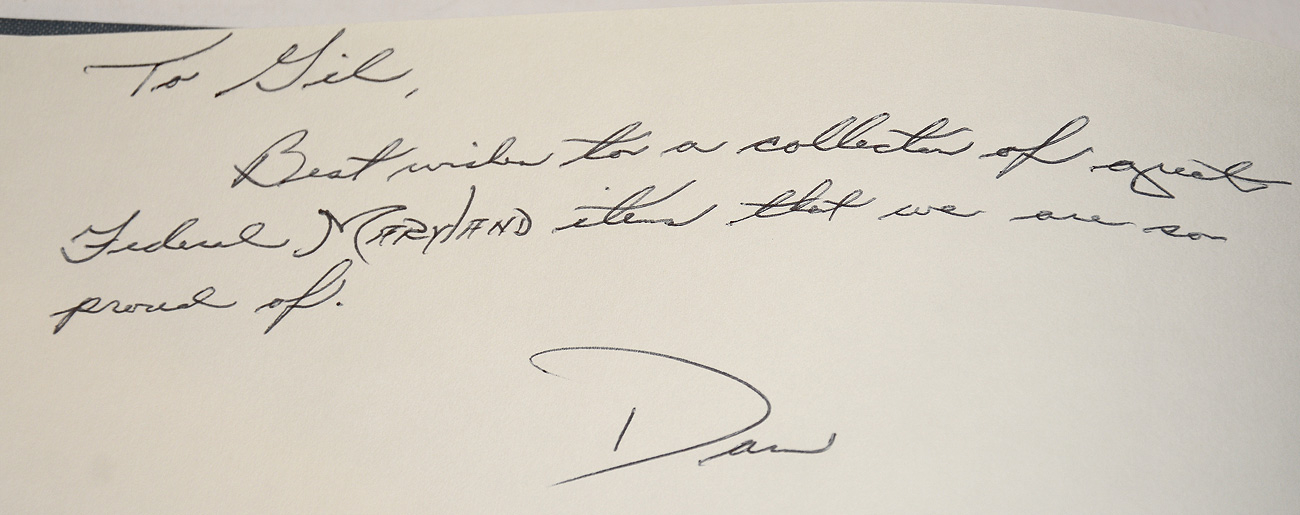 To Gil,
Best wishes to a collector of great
Federal MARYLAND items that we are so
proud of.
Dan